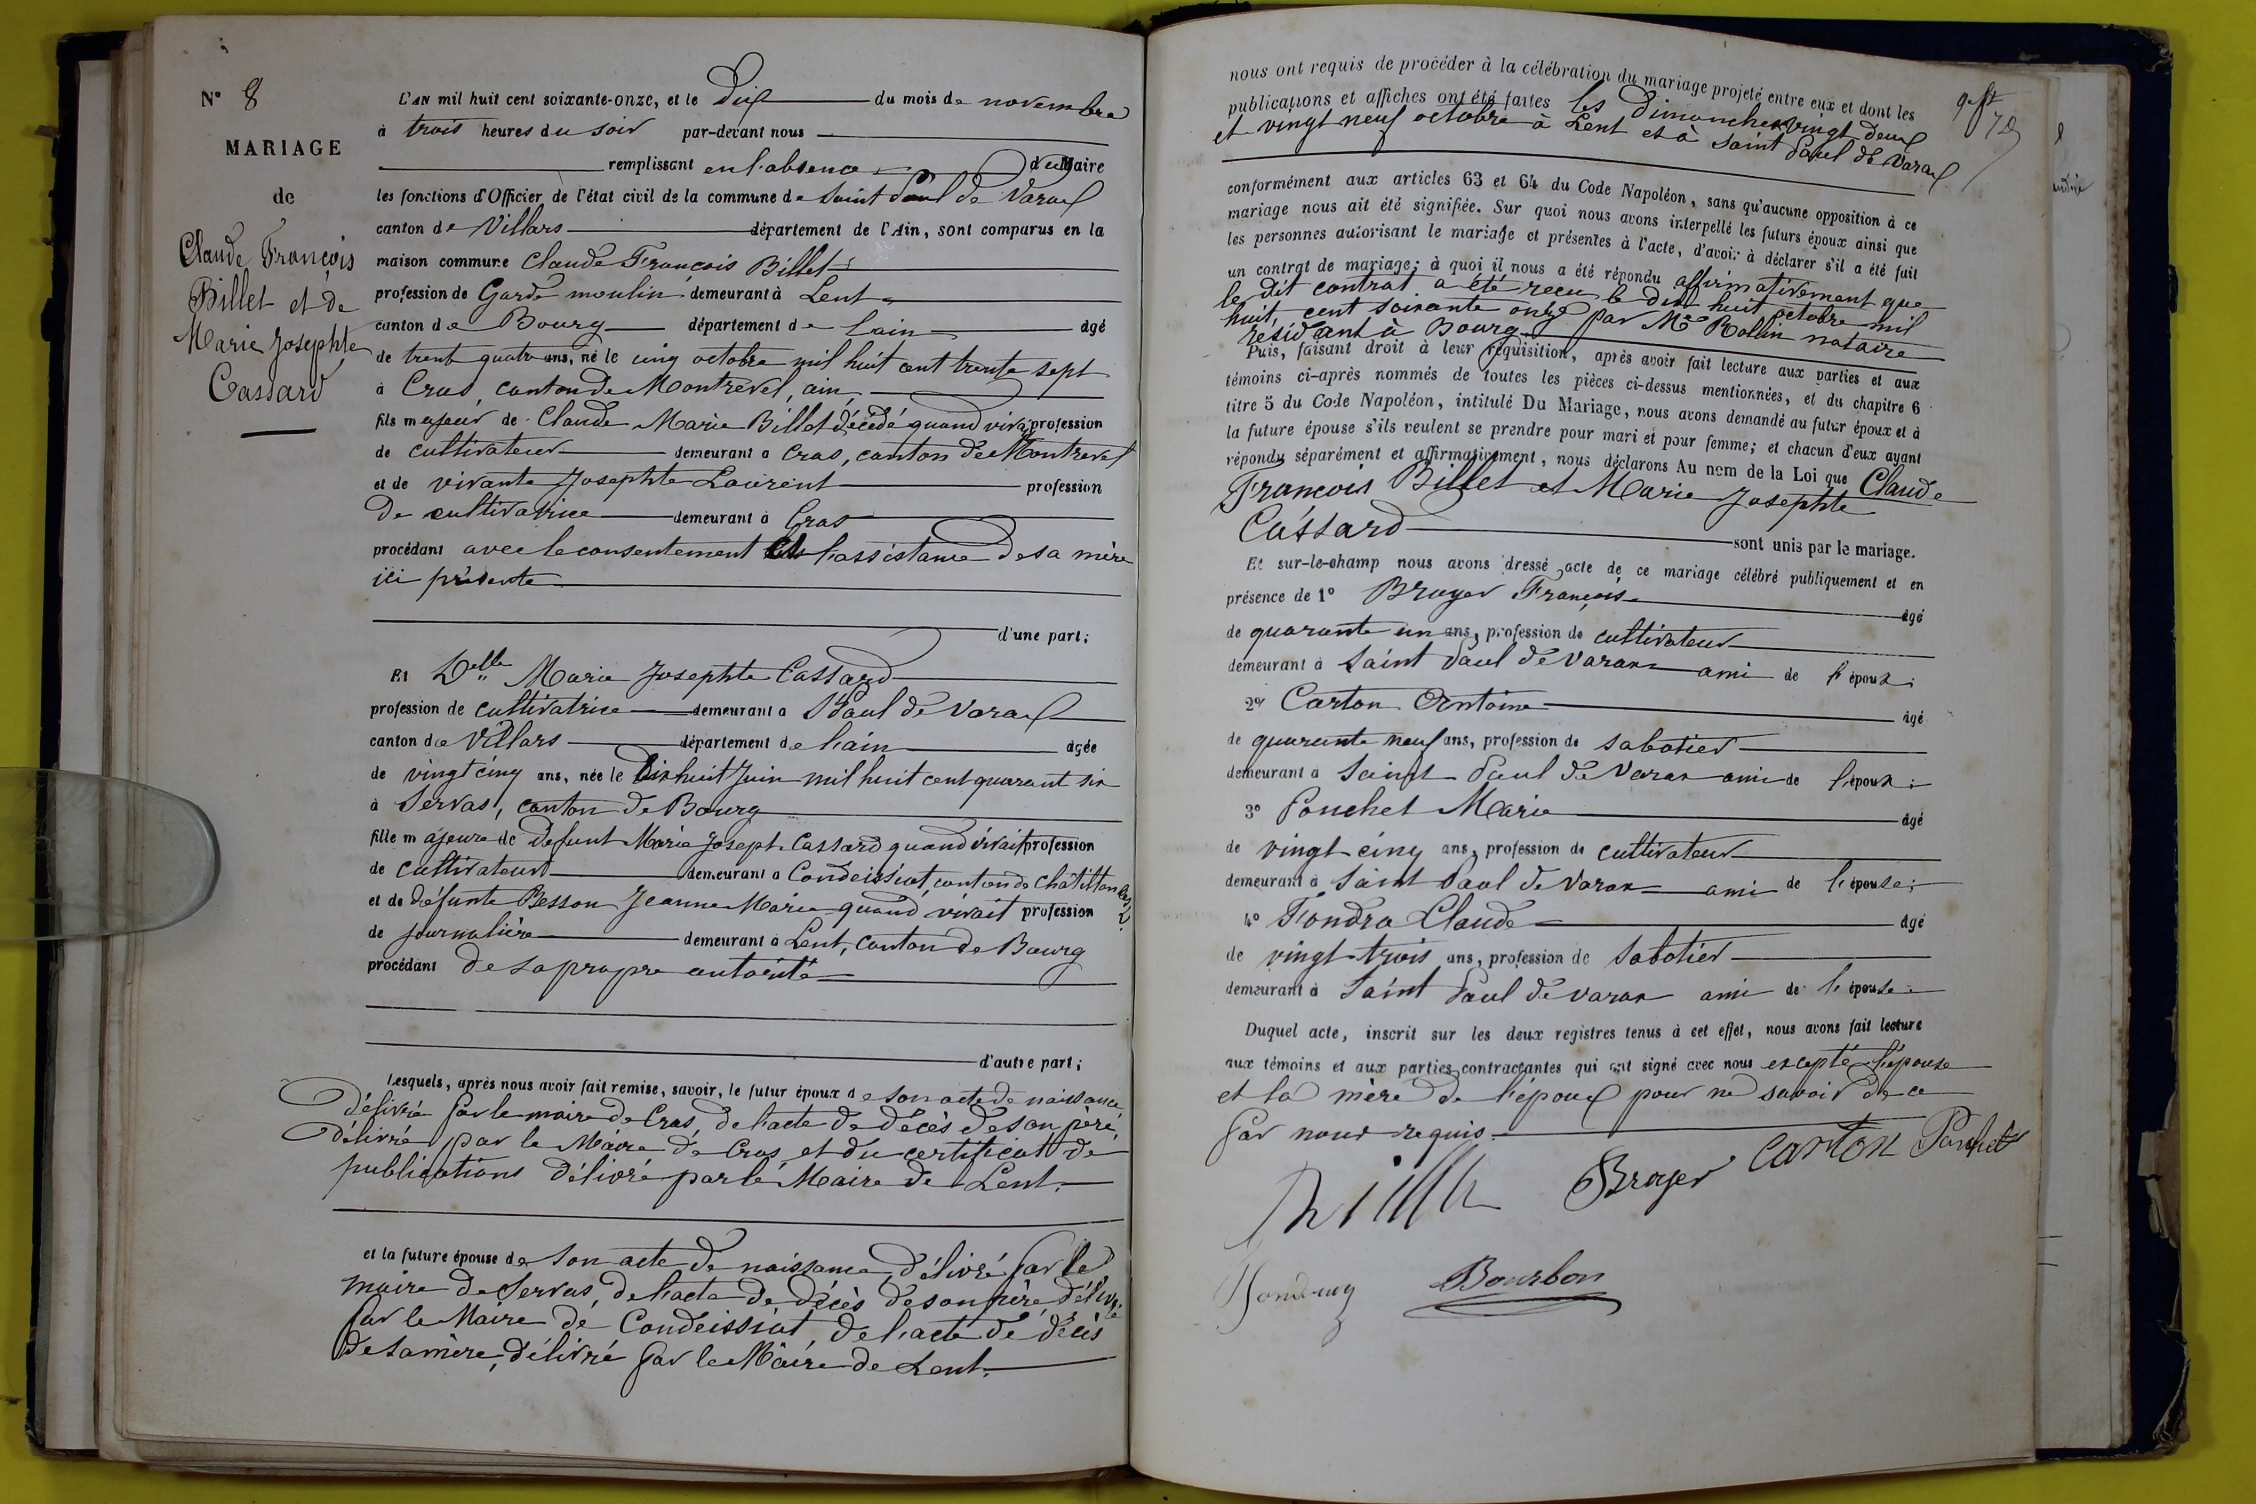 N° 8
MARIAGE
de
Claude François
Billet et de
Marie Josephte
Cassard
L'AN mil huit cent soixante-onze, et le Dix du mois de novembre
à trois heures du soir par-devant nous
remplissant en l'absence du Maire
les fonctions d'Officier de l'état civil de la commune de Saint Paul de Varax
canton de Villars département de l'Ain, sont comparus en la
maison commune Claude François Billet
profession de Garde moulin demeurant à Lent
canton de Bourg département de l'ain âgé
de trente quatre ans, né le cinq octobre mil huit cent trente sept
à Cras, canton de Montrevel, ain,
fils majeur de Claude Marie Billet décédé quand vivait profession
de cultivateur demeurant à Cras, canton de Montrevel
et de vivante Josephte Laurent profession
De cultivatrice demeurant à Cras
procédant avec le consentement et l'assistance de sa mère
ici présente
d'une part;
Et Delle Marie Josephte Cassard
profession de cultivatrice demeurant à St Paul de Varax
canton de Villars département de l'ain âgée
de vingt cinq ans, née le Dix huit Juin mil huit cent quarant six
à Servas, canton de Bourg
fille majeure de défunt Marie Joseph Cassard quand vivait profession
de cultivateur demeurant à Condeissiat, canton de Châtillon les D.
et de défunte Besson Jeanne Marie quand vivait profession
de journalière demeurant à Lent, canton de Bourg
procédant de sa propre autorité
d'autre part;
Lesquels, après nous avoir fait remise, savoir, le futur époux de son acte de naissance,
délivré par le maire de Cras, de l'acte de décès de son père,
délivré par le Maire de Cras, et du certificat de
publications délivré par le Maire de Lent.
et la future épouse de son acte de naissance, délivré par le
maire de Servas, de l'acte de décès de son père, délivré
par le Maire de Condeissiat, de l'acte de décès
de sa mère, délivré par le Maire de Lent.
nous ont requis de procéder à la célébration du mariage projeté entre eux et dont les
publications et affiches ont été faites les Dimanches vingt deux
et vingt neuf octobre à Lent et à Saint Paul de Varax
conformément aux articles 63 et 64 du Code Napoléon, sans qu'aucune opposition à ce
mariage nous ait été signifiée. Sur quoi nous avons interpellé les futurs époux ainsi que
les personnes autorisant le mariage et présentes à l'acte, d'avoir à déclarer s'il a été fait
un contrat de mariage; à quoi il nous a été répondu affirmativement que
le dit contrat a été reçu le dix huit octobre mil
huit cent soixante onze par Me Rollin notaire
résidant à Bourg
Puis, faisant droit à leur réquisition, après avoir fait lecture aux parties et aux
témoins ci-après nommés de toutes les pièces ci-dessus mentionnées, et du chapitre 6
titre 5 du Code Napoléon, intitulé Du Mariage, nous avons demandé au futur époux et à
la future épouse s'ils veulent se prendre pour mari et pour femme; et chacun d'eux ayant
répondu séparément et affirmativement, nous déclarons Au nom de la Loi que Claude
François Billet et Marie Josephte
Cassard sont unis par le mariage.
Et sur-le-champ nous avons dressé acte de ce mariage célébré publiquement et en
présence de 1° Broyer François âgé
de quarante un ans, profession de cultivateur
demeurant à Saint Paul de Varax ami de l'époux;
2° Carton Antoine âgé
de quarante neuf ans, profession de sabotier
demeurant à Saint Paul de Varax ami de l'époux;
3° Ponchet Marie âgé
de vingt cinq ans, profession de cultivateur
demeurant à Saint Paul de Varax ami de l'épouse;
4° Fondra Claude âgé
de vingt-trois ans, profession de sabotier
demeurant à Saint Paul de Varax ami de l'épouse
Duquel acte, inscrit sur les deux registres tenus à cet effet, nous avons fait lecture
aux témoins et aux parties contractantes qui ont signé avec nous excepté l'épouse
et la mère de l'époux pour ne savoir de ce
par nous requis.
Broyer Carton Ponchet
Bourbon